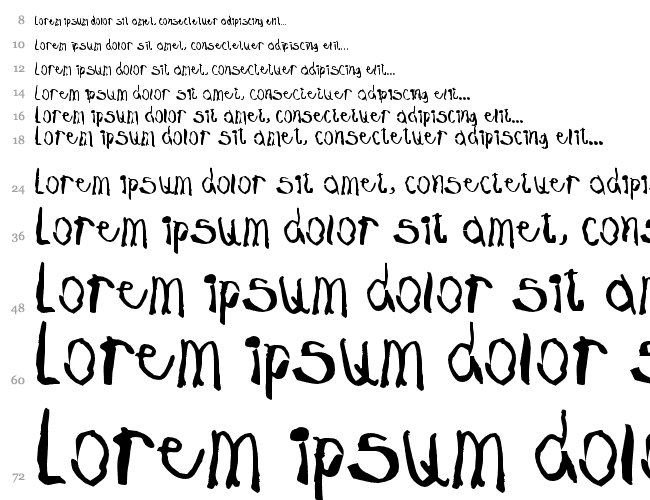 8 Lorem ipsum dolor sit amet, consectetuer adipiscing elit...
10 Lorem ipsum dolor sit amet, consectetuer adipiscing elit...
12 Lorem ipsum dolor sit amet, consectetuer adipiscing elit...
14 Lorem ipsum dolor sit amet, consectetuer adipiscing elit...
16 Lorem ipsum dolor sit amet, consectetuer adipiscing elit...
18 Lorem ipsum dolor sit amet, consectetuer adipiscing elit...
24 Lorem ipsum dolor sit amet, consectetuer adipi
36 Lorem ipsum dolor sit amet, con
48 Lorem ipsum dolor sit a
60 Lorem ipsum dolor
72 Lorem ipsum dol